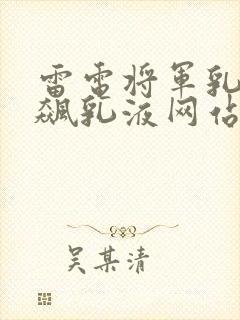 雷电将军乳
飙乳液网站
吴某清